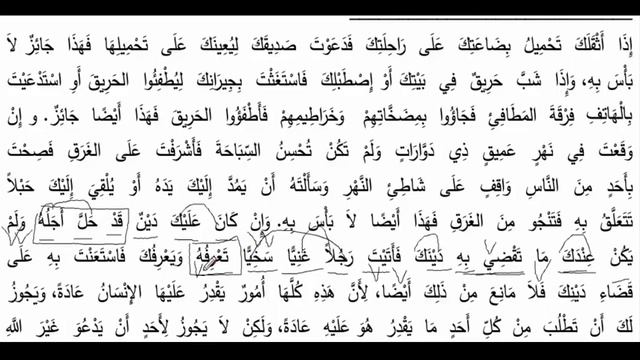 إِذَا أَثْقَلَكَ تَحْمِيلُ بِضَاعَتِكَ عَلَى رَاحِلَتِكَ فَدَعَوْتَ صَدِيقَكَ لِيُعِينَكَ عَلَى تَحْمِيلِهَا فَهَذَا جَائِزٌ لاَ
بَأْسَ بِهِ، وَإِذَا شَبَّ حَرِيقٌ فِي بَيْتِكَ أَوْ إِصْطَبْلِكَ فَاسْتَغَثْتَ بِجِيرَانِكَ لِيُطْفِئُوا الْحَرِيقَ أَوِ اسْتَدْعَيْتَ
بِالْهَاتِفِ فِرْقَةَ الْمَطَافِئِ فَجَاؤُوا بِمِضَخَّاتِهِمْ وَخَرَاطِيمِهِمْ فَأَطْفَؤُوا الْحَرِيقَ فَهَذَا أَيْضًا جَائِزٌ. و إِنْ
وَقَعْتَ فِي نَهْرٍ عَمِيقٍ ذِي دَوَّارَاتٍ وَلَمْ تَكُنْ تُحْسِنُ السِّبَاحَةَ فَأَشْرَفْتَ عَلَى الْغَرَقِ فَصِحْتَ
بِأَحَدٍ مِنَ النَّاسِ وَاقِفٍ عَلَى شَاطِئِ النَّهْرِ وَسَأَلْتَهُ أَنْ يَمُدَّ إِلَيْكَ يَدَهُ أَوْ يُلْقِيَ إِلَيْكَ حَبْلاً
تَتَعَلَّقُ بِهِ فَتَنْجُو مِنَ الْغَرَقِ فَهَذَا أَيْضا لاَ بَأْسَ بِهِ. وَإِنْ كَانَ عَلَيْكَ دَيْنٌ قَدْ حَلَّ أَجَلُهُ وَلَمْ
يَكُنْ عِنْدَكَ مَا تَقْضِي بِهِ دَيْنَكَ فَأَتَيْتَ رَجُلاً غَنِيًّا سَخِيًّا تَعْرِفُهُ وَيَعْرِفُكَ فَاسْتَعَنْتَ بِهِ عَلَى
قَضَاءِ دَيْنِكَ فَلاَ مَانِعَ مِنْ ذَلِكَ أَيْضًا، لِأَنَّ هَذِهِ كُلَّهَا أُمُورٌ يَقْدِرُ عَلَيْهَا الْإِنْسَانُ عَادَةً، وَيَجُوزُ
لَكَ أَنْ تَطْلُبَ مِنْ كُلِّ أَحَدٍ مَا يَقْدِرُ هُوَ عَلَيْهِ عَادَةً، وَلَكِنْ لاَ يَجُوزُ لِأَحَدٍ أَنْ يَدْعُوَ غَيْرَ اللَّهِ